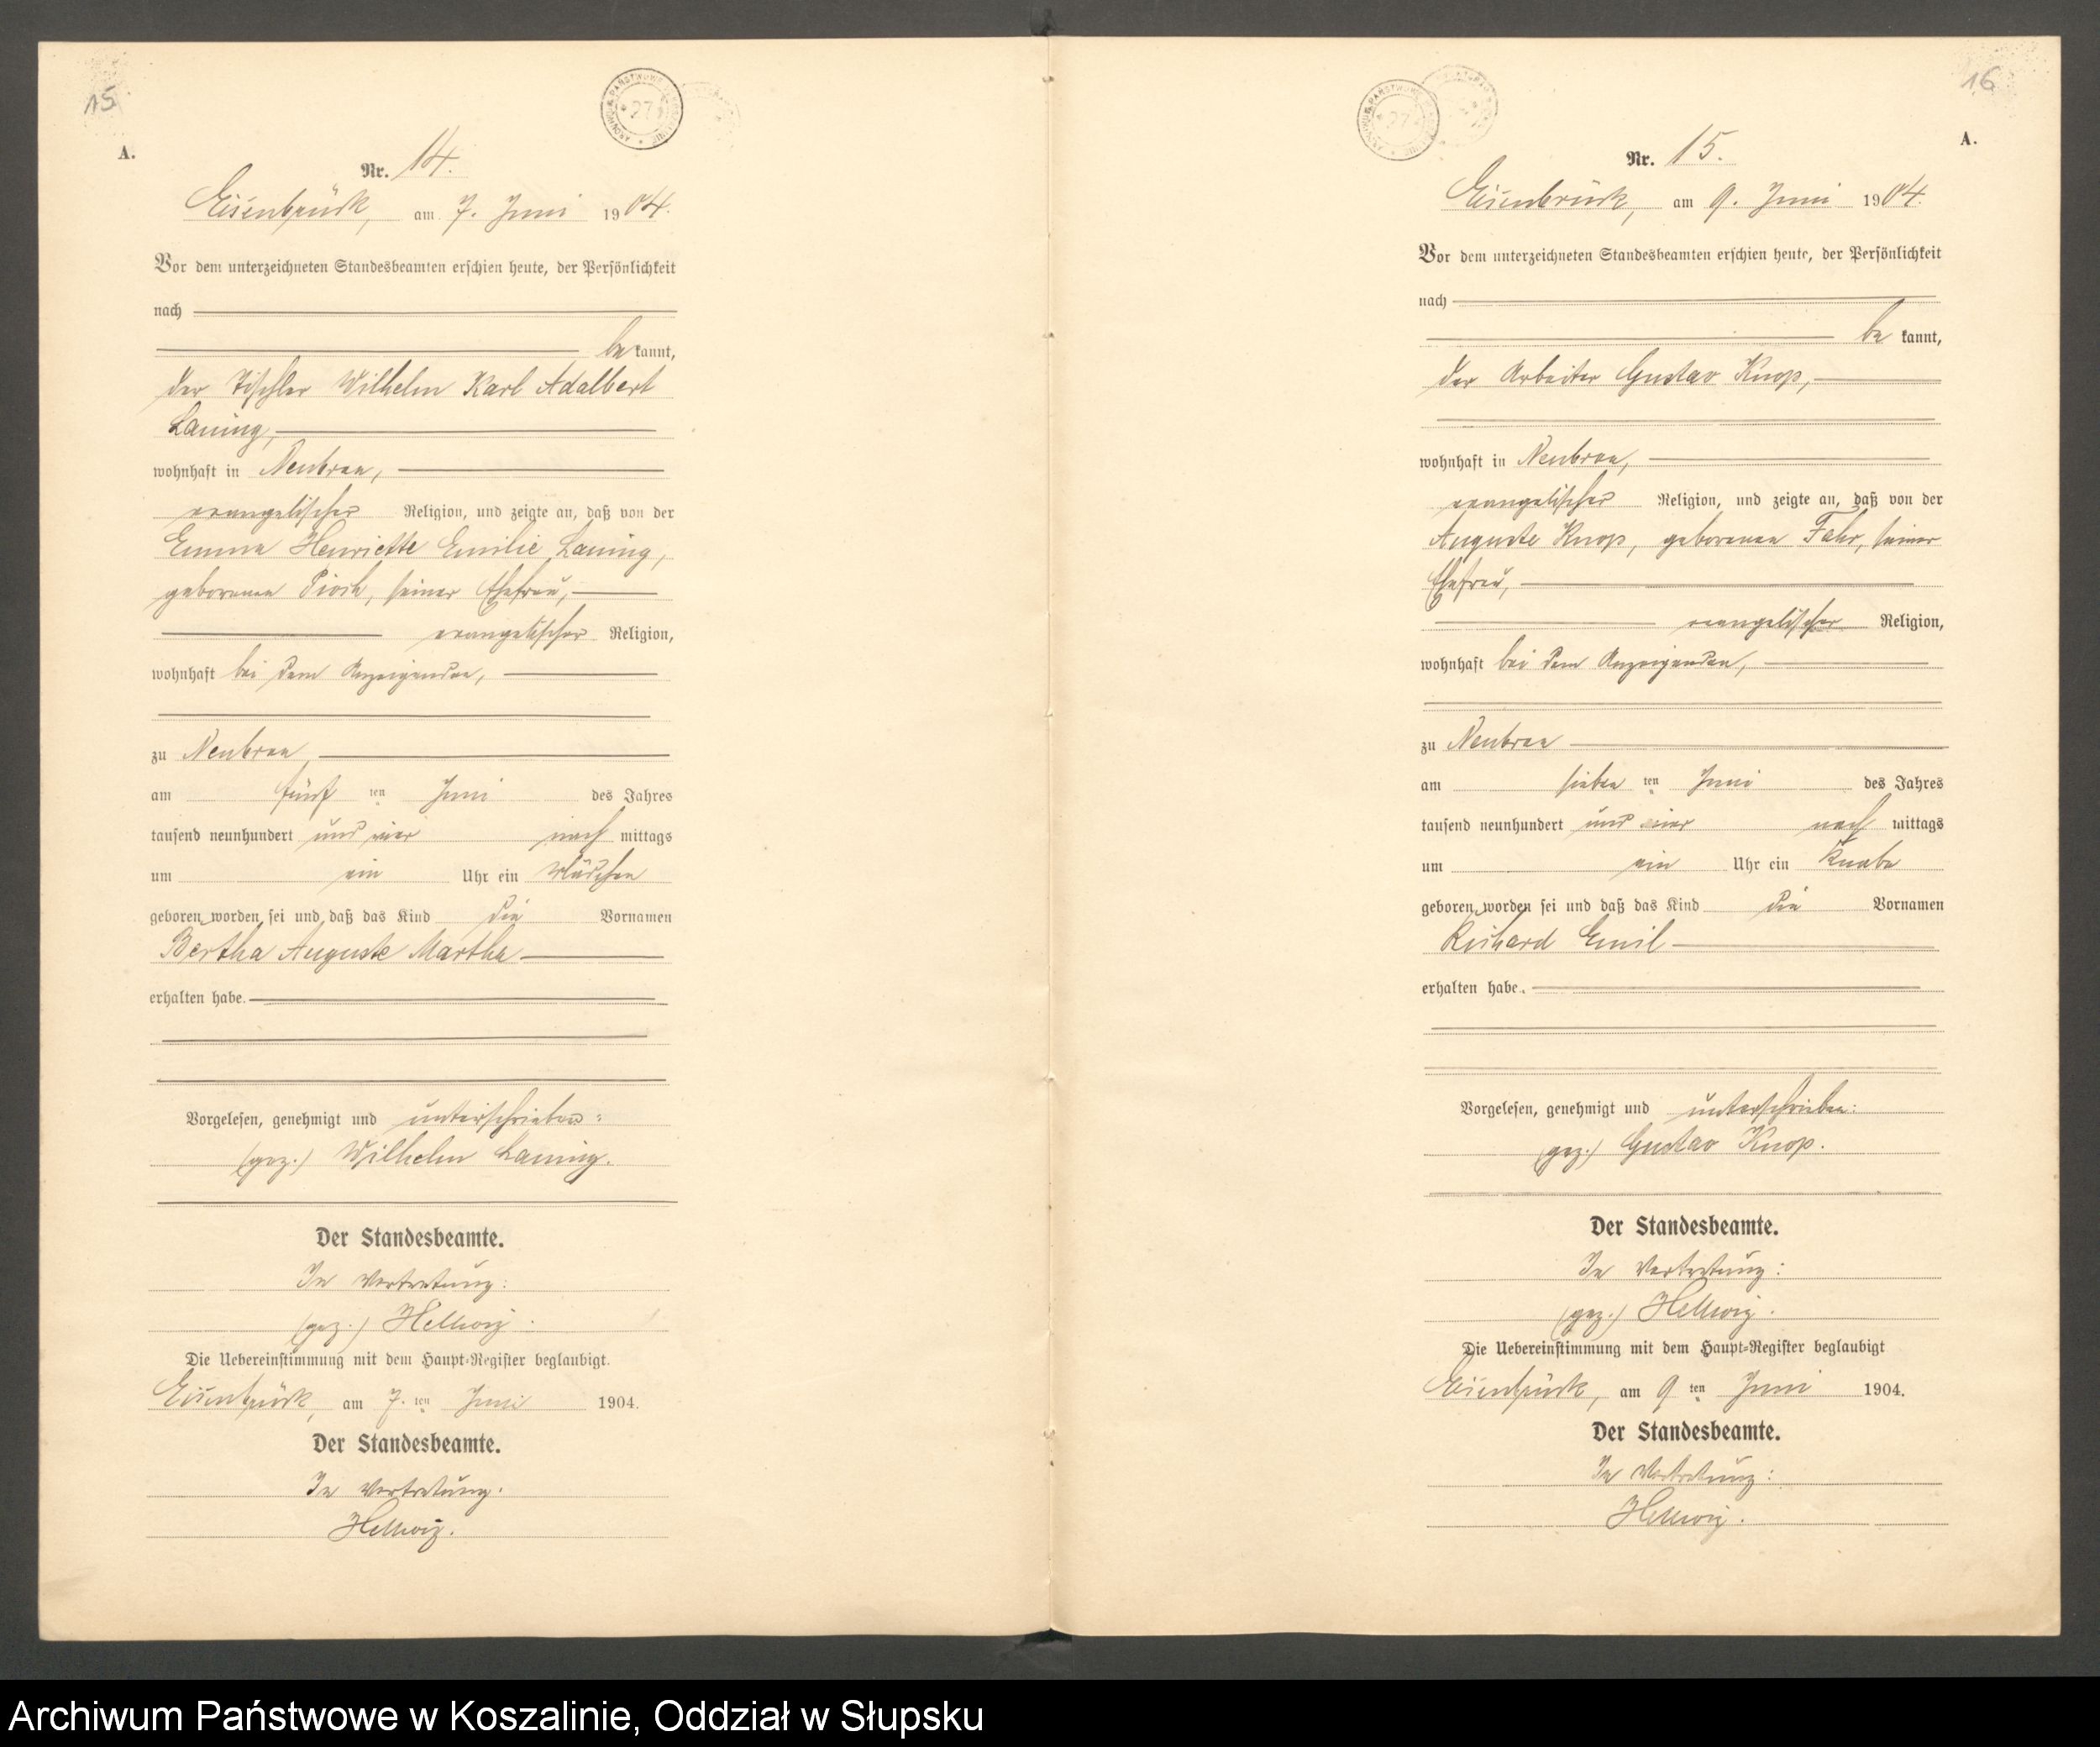 15
A.
Nr. 14.
Eisenbrück, am 7. Juni 1904.
Vor dem unterzeichneten Standesbeamten erschien heute, der Persönlichkeit
nach
be kannt,
der Tischler Wilhelm Karl Adalbert
Laning,
wohnhaft in Neubraa,
evangelischer Religion, und zeigte an, daß von der
Emma Henriette Emilie Laning,
geborenen Pioch, seiner Ehefrau,
evangelischer Religion,
wohnhaft bei dem Anzeigenden,
zu Neubraa
am fünf ten Juni des Jahres
tausend neunhundert und vier nach mittags
um ein Uhr ein Mädchen
geboren worden sei und daß das Kind die Vornamen
Bertha Auguste Martha
erhalten habe.
Vorgelesen, genehmigt und unterschrieben:
(gez.) Wilhelm Laning.
Der Standesbeamte.
In Vertretung:
(gez.) Hellwig.
Die Uebereinstimmung mit dem Haupt-Register beglaubigt.
Eisenbrück, am 7. ten Juni 1904.
Der Standesbeamte.
In Vertretung.
Hellwig.
16
A.
Nr. 15.
Eisenbrück, am 9. Juni 1904.
Vor dem unterzeichneten Standesbeamten erschien heute, der Persönlichkeit
nach
be kannt,
der Arbeiter Gustav Knop,
wohnhaft in Neubraa,
evangelischer Religion, und zeigte an, daß von der
Auguste Knop, geborenen Fahr, seiner
Ehefrau,
evangelischer Religion,
wohnhaft bei dem Anzeigenden,
zu Neubraa
am sieben ten Juni des Jahres
tausend neunhundert und vier nach mittags
um ein Uhr ein Knabe
geboren worden sei und daß das Kind die Vornamen
Richard Emil
erhalten habe.
Vorgelesen, genehmigt und unterschrieben:
(gez.) Gustav Knop.
Der Standesbeamte.
In Vertretung:
(gez.) Hellwig.
Die Uebereinstimmung mit dem Haupt-Register beglaubigt
Eisenbrück, am 9 ten Juni 1904.
Der Standesbeamte.
In Vertretung:
Hellwig.
Archiwum Państwowe w Koszalinie, Oddział w Słupsku